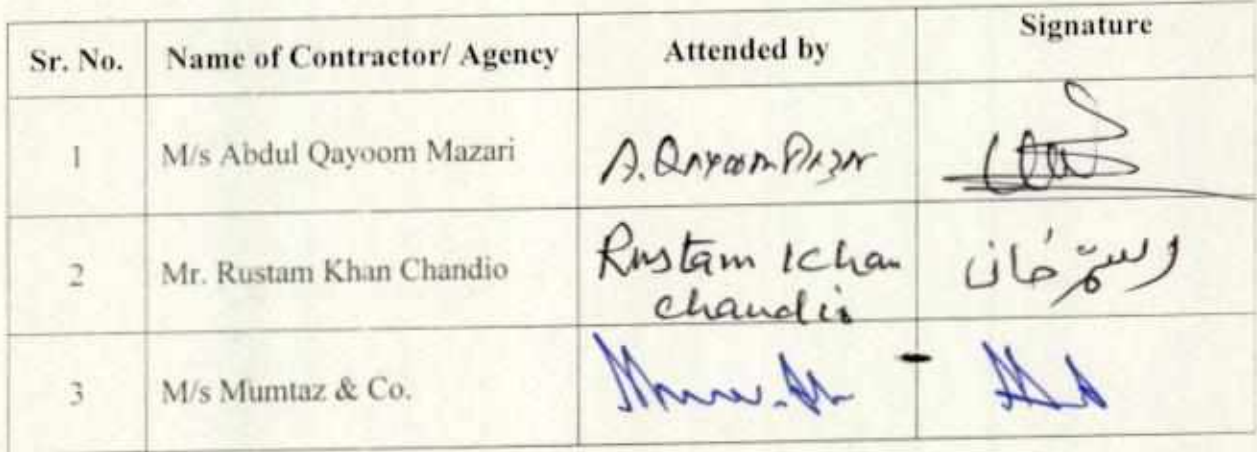 Sr. No. Name of Contractor/ Agency Attended by Signature
1 M/s Abdul Qayoom Mazari A. Qayoom Mazar
2 Mr. Rustam Khan Chandio Rustam Khan خان
Chandio
3 M/s Mumtaz & Co.